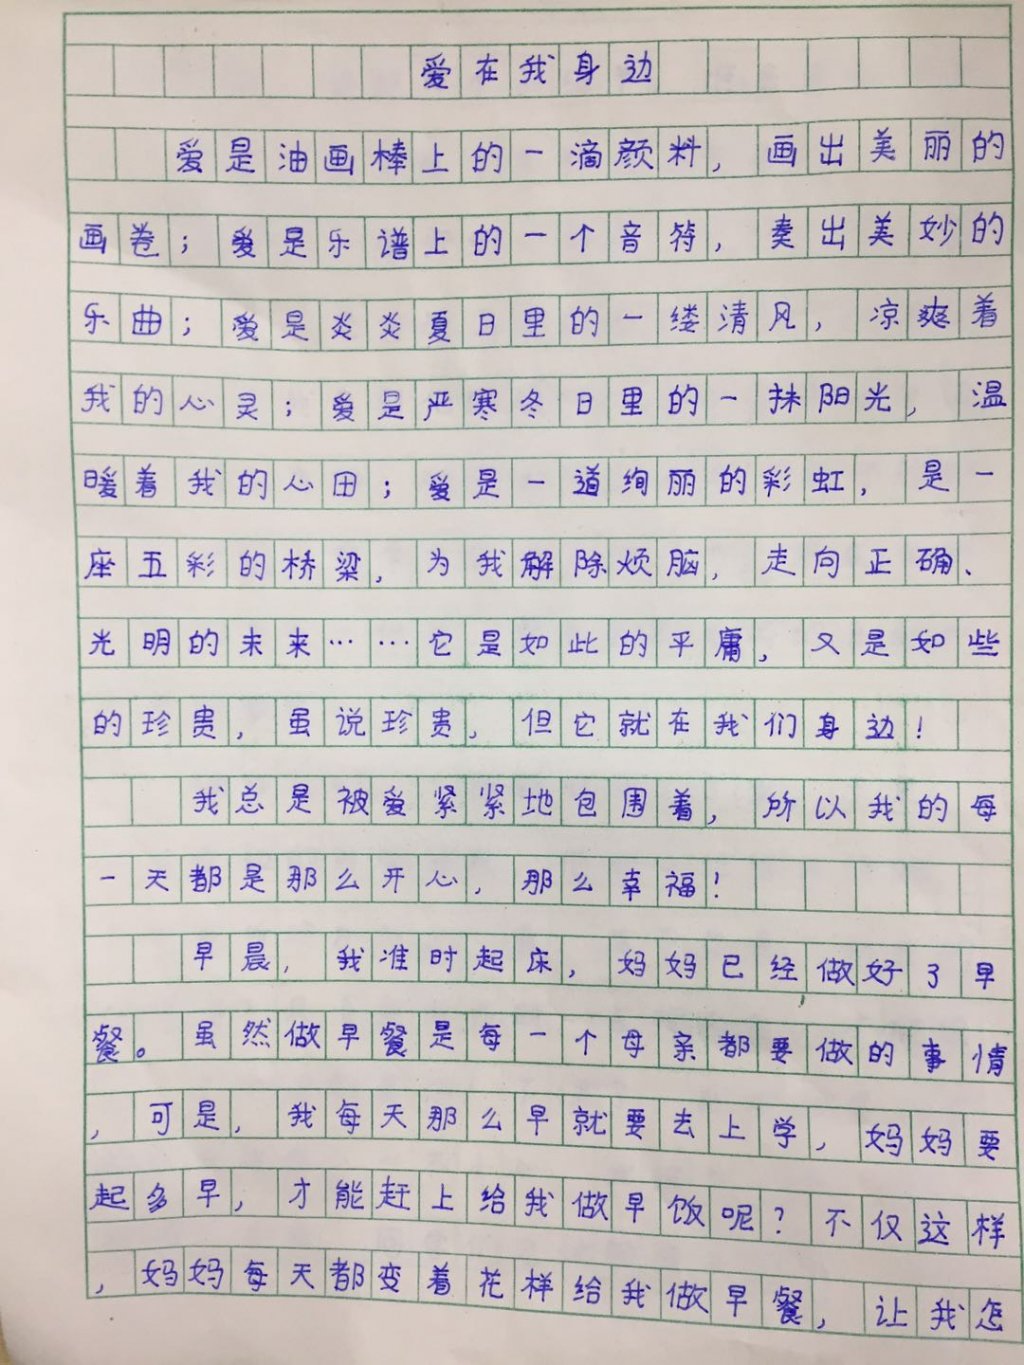 爱在我身边
爱是油画棒上的一滴颜料，画出美丽的
画卷；爱是乐谱上的一个音符，奏出美妙的
乐曲；爱是炎炎夏日里的一缕清风，凉爽着
我的心灵；爱是严寒冬日里的一抹阳光，温
暖着我的心田；爱是一道绚丽的彩虹，是一
座五彩的桥梁，为我解除烦脑，走向正确、
光明的未来……它是如此的平庸，又是如些
的珍贵，虽说珍贵，但它就在我们身边！
我总是被爱紧紧地包围着，所以我的每
一天都是那么开心，那么幸福！
早晨，我准时起床，妈妈已经做好了早
餐。虽然做早餐是每一个母亲都要做的事情
，可是，我每天那么早就要去上学，妈妈要
起多早，才能赶上给我做早饭呢？不仅这样
，妈妈每天都变着花样给我做早餐，让我怎